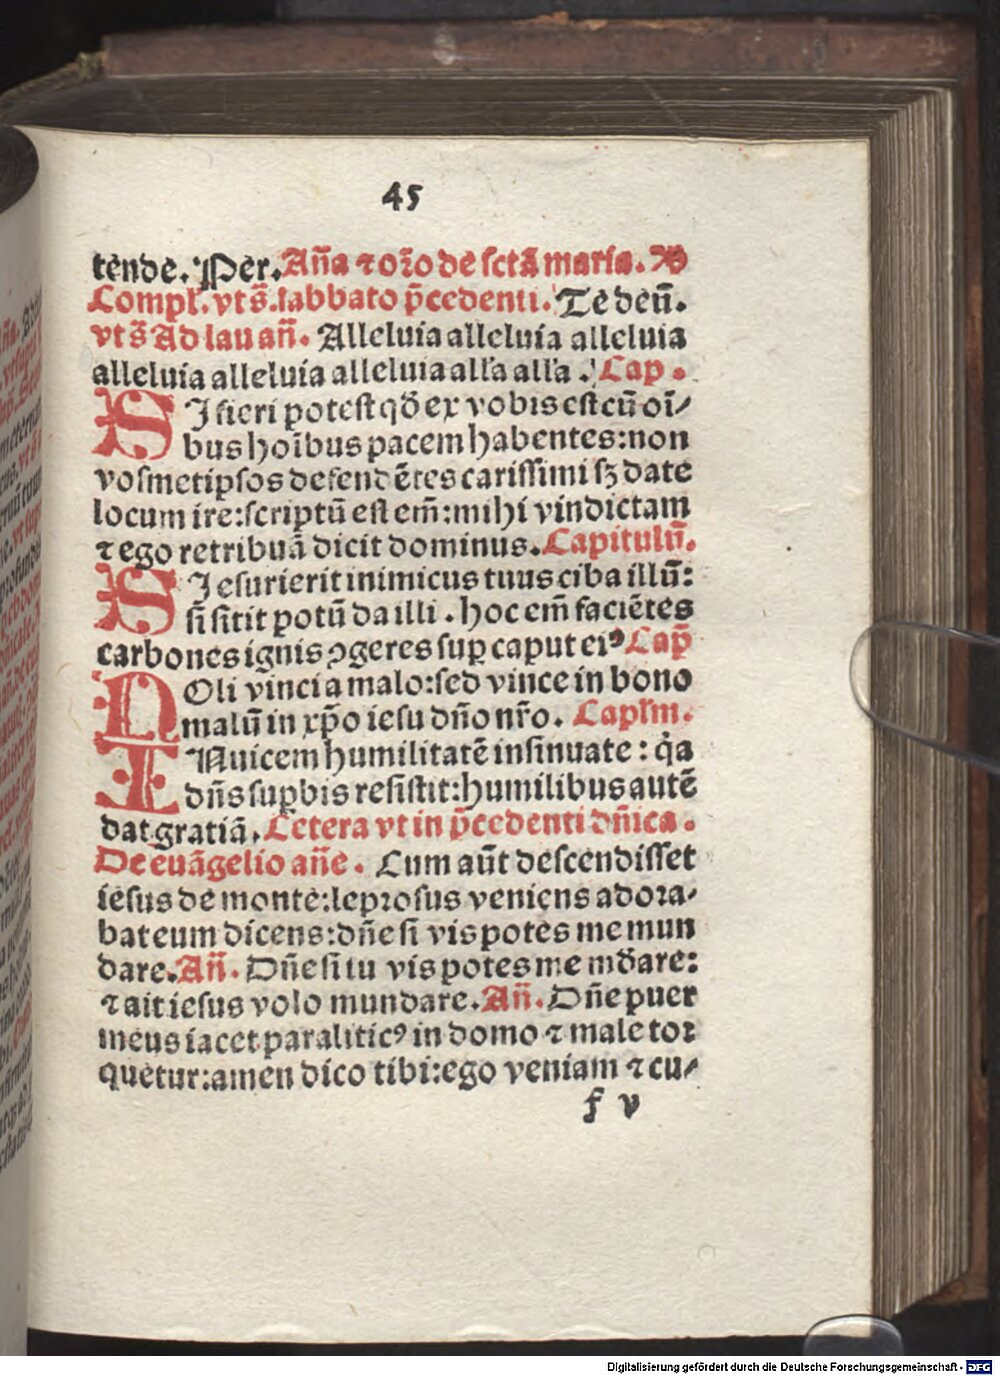 45
tende. Per. Añа ⁊ orō de sctā maria. Ad
Compl̄. vt s̄. sabbato p̄cedenti. Te deū.
vt s̄ Ad lau añ. Alleluia alleluia alleluia
alleluia alleluia alleluia all'a all'a. Cap.
SI fieri potest qđ ex vobis est cū oī⸗
bus hoībus pacem habentes: non
vosmetipsos defendētes carissimi sꝫ date
locum ire: scriptū est em̄: mihi vindictam
⁊ ego retribuā dicit dominus. Capitulū.
SI esurierit inimicus tuus ciba illū:
si sitit potū da illi. hoc em̄ faciētes
carbones ignis ꝯgeres suꝑ caput eiꝰ Cap̄
NOli vinci a malo: sed vince in bono
malū in xp̄o iesu dño nr̄o. Capl'm.
INuicem humilitatē insinuate: q̇a
dñs suꝑbis resistit: humilibus autē
dat gratiā. Cetera vt in p̄cedenti dñica.
De euāgelio añe. Cum aūt descendisset
iesus de monte: leprosus veniens adora⸗
bat eum dicens: dñe si vis potes me mun
dare. Añ. Dñe si tu vis potes me mđare:
⁊ ait iesus volo mundare. Añ. Dñe puer
meus iacet paraliticꝰ in domo ⁊ male tor
quetur: amen dico tibi: ego veniam ⁊ cu⸗
f v
Digitalisierung gefördert durch die Deutsche Forschungsgemeinschaft - DFG